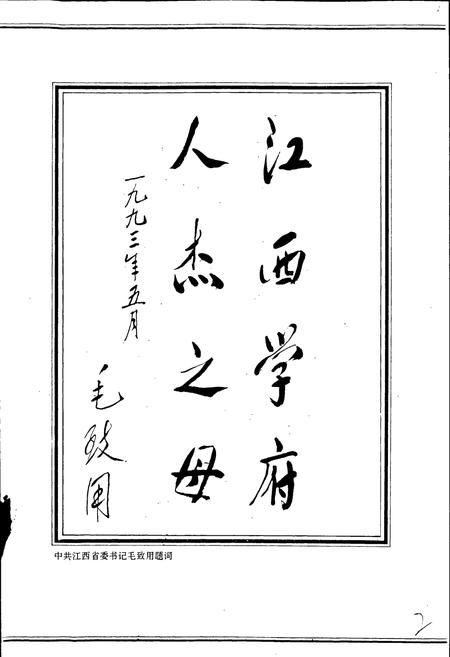 江西学府
人杰之母
一九九三年五月
毛致用
中共江西省委书记毛致用题词
2